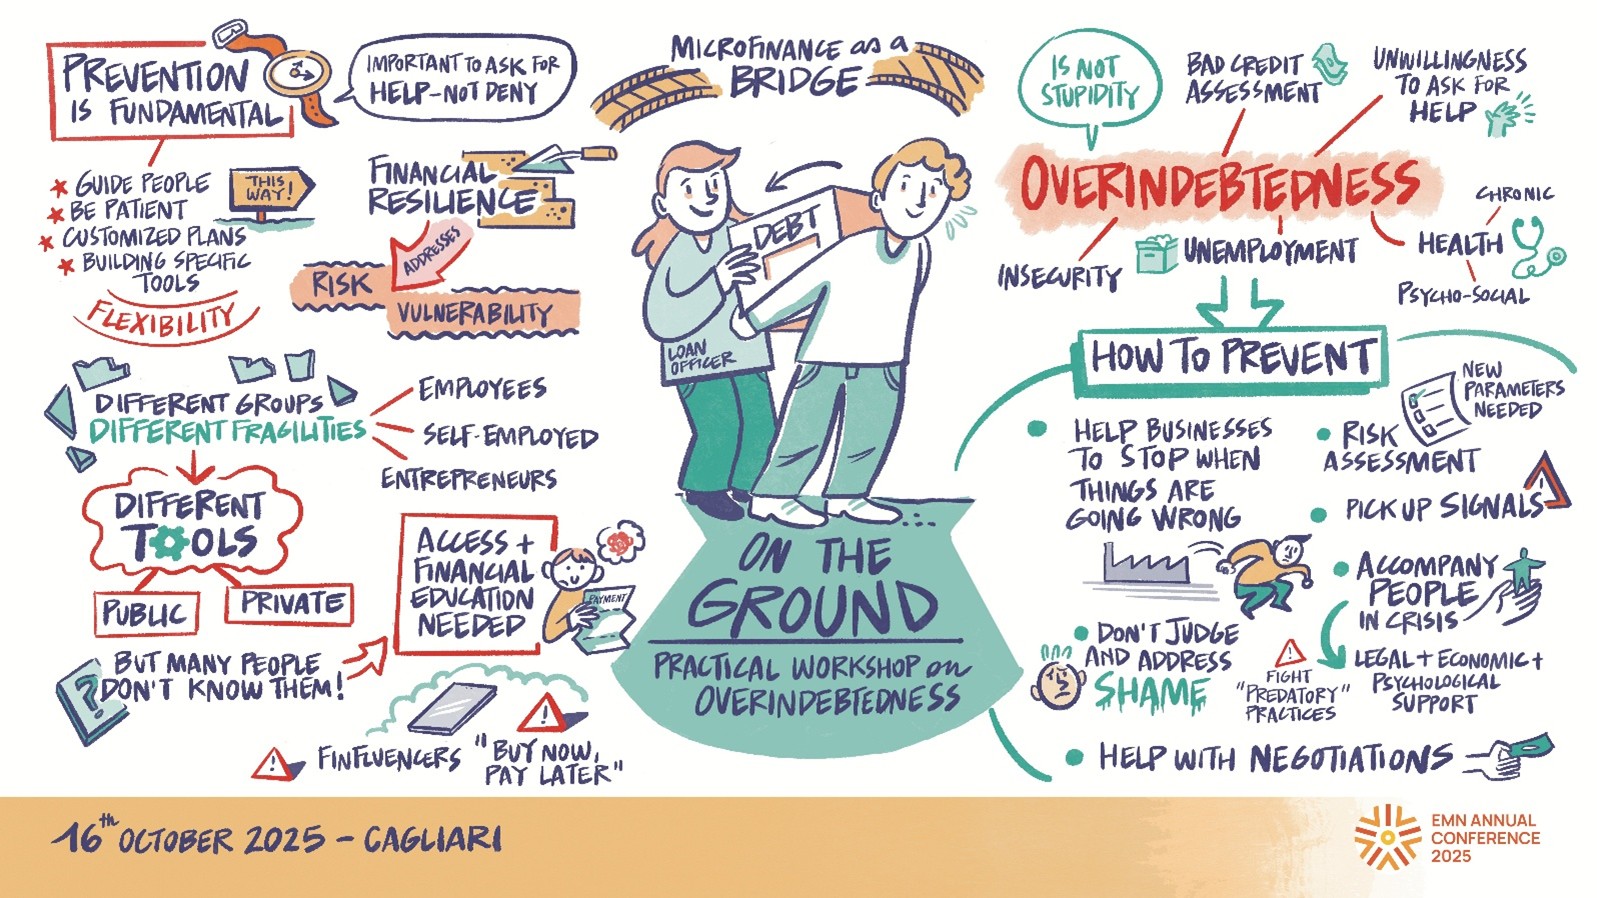 PREVENTION
IS FUNDAMENTAL
IMPORTANT TO ASK FOR
HELP-NOT DENY
GUIDE PEOPLE
BE PATIENT
CUSTOMIZED PLANS
BUILDING SPECIFIC
TOOLS
FLEXIBILITY
THIS
WAY!
FINANCIAL
RESILIENCE
ADDRESSES
RISK
VULNERABILITY
DIFFERENT GROUPS
DIFFERENT FRAGILITIES
EMPLOYEES
SELF-EMPLOYED
ENTREPRENEURS
DIFFERENT
TOOLS
PUBLIC
PRIVATE
BUT MANY PEOPLE
DON'T KNOW THEM!
?
ACCESS +
FINANCIAL
EDUCATION
NEEDED
PAYMENT
FINFLUENCERS
"BUY NOW,
PAY LATER"
MICROFINANCE as a
BRIDGE
DEBT
LOAN
OFFICER
ON THE
GROUND
PRACTICAL WORKSHOP on
OVERINDEBTEDNESS
IS NOT
STUPIDITY
BAD CREDIT
ASSESSMENT
UNWILLINGNESS
TO ASK FOR
HELP
OVERINDEBTEDNESS
INSECURITY
UNEMPLOYMENT
CHRONIC
HEALTH
PSYCHO-SOCIAL
HOW TO PREVENT
HELP BUSINESSES
TO STOP WHEN
THINGS ARE
GOING WRONG
DON'T JUDGE
AND ADDRESS
SHAME
NEW
PARAMETERS
NEEDED
RISK
ASSESSMENT
PICK UP SIGNALS
ACCOMPANY
PEOPLE
IN CRISIS
LEGAL + ECONOMIC +
PSYCHOLOGICAL
SUPPORT
FIGHT
"PREDATORY"
PRACTICES
HELP WITH NEGOTIATIONS
16th OCTOBER 2025 - CAGLIARI
EMN ANNUAL
CONFERENCE
2025